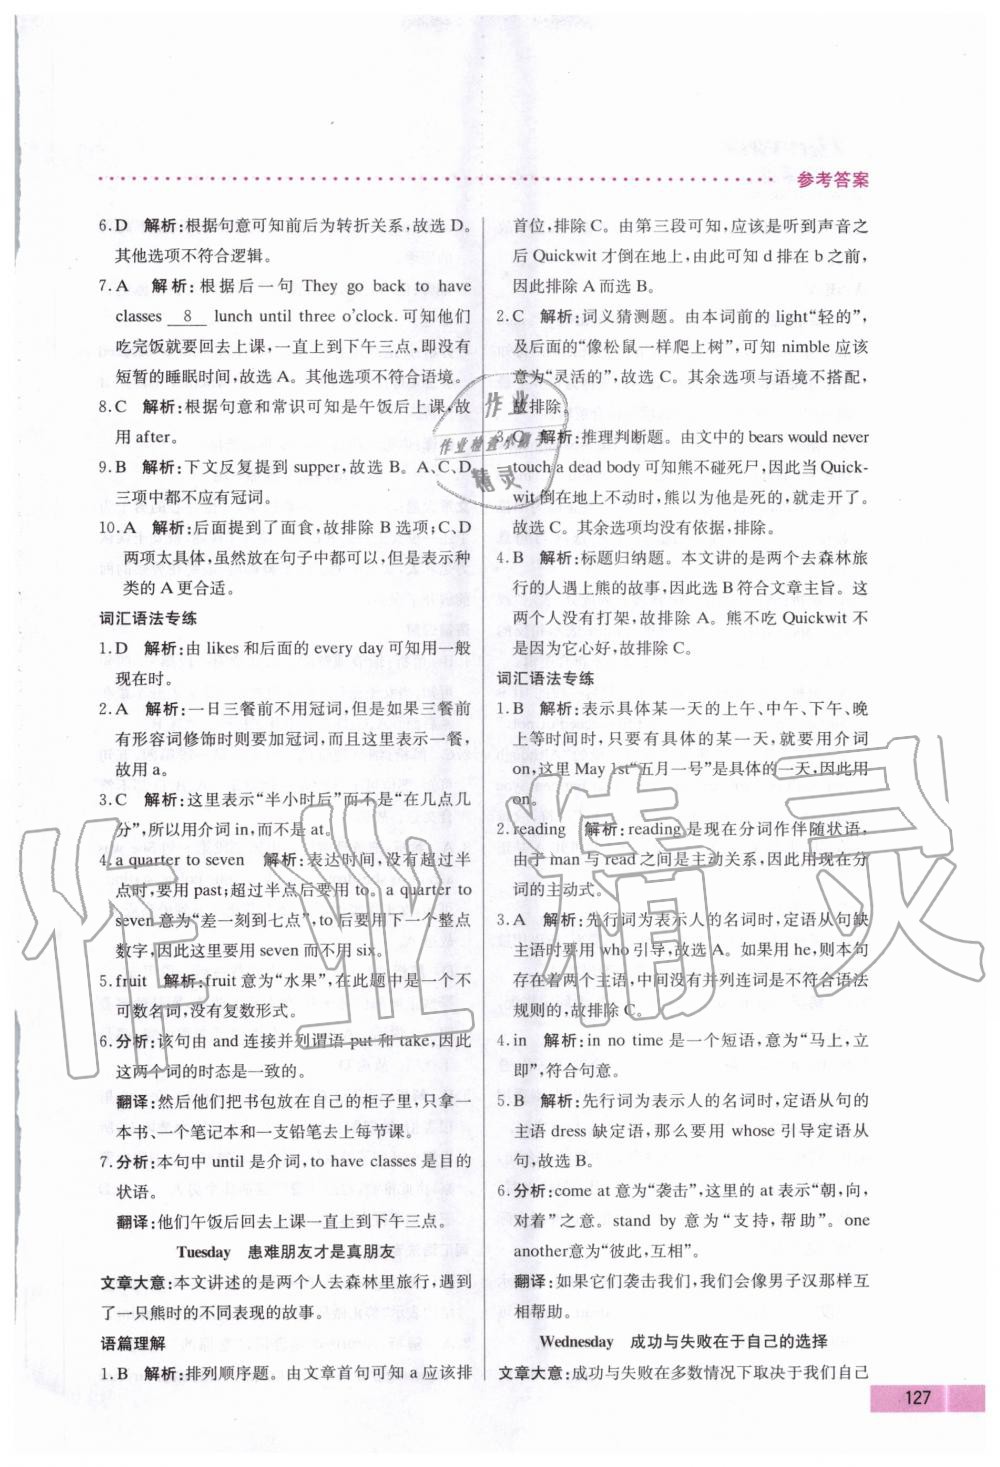 参考答案
6. D　解析:根据句意可知前后为转折关系,故选 D。
其他选项不符合逻辑。
7. A　解析:根据后一句 They go back to have
classes 8 lunch until three o'clock. 可知他们
吃完饭就要回去上课,一直上到下午三点,即没有
短暂的睡眠时间,故选 A。其他选项不符合语境。
8. C　解析:根据句意和常识可知是午饭后上课,故
用 after。
9. B　解析:下文反复提到 supper,故选 B。A、C、D
三项中都不应有冠词。
10. A　解析:后面提到了面食,故排除 B 选项;C、D
两项太具体,虽然放在句子中都可以,但是表示种
类的 A 更合适。
词汇语法专练
1. D　解析:由 likes 和后面的 every day 可知用一般
现在时。
2. A　解析:一日三餐前不用冠词,但是如果三餐前
有形容词修饰时则要加冠词,而且这里表示一餐,
故用 a。
3. C　解析:这里表示“半小时后”而不是“在几点几
分”,所以用介词 in,而不是 at。
4. a quarter to seven　解析:表达时间,没有超过半
点时,要用 past;超过半点后要用 to。a quarter to
seven 意为“差一刻到七点”,to 后要用下一个整点
数字,因此这里要用 seven 而不用 six。
5. fruit　解析:fruit 意为“水果”,在此题中是一个不
可数名词,没有复数形式。
6. 分析:该句由 and 连接并列谓语 put 和 take,因此
这两个词的时态是一致的。
翻译:然后他们把书包放在自己的柜子里,只拿一
本书、一个笔记本和一支铅笔去上每节课。
7. 分析:本句中 until 是介词,to have classes 是目的
状语。
翻译:他们午饭后回去上课一直上到下午三点。
Tuesday　患难朋友才是真朋友
文章大意:本文讲述的是两个人去森林里旅行,遇到
了一只熊时的不同表现的故事。
语篇理解
1. B　解析:排列顺序题。由文章首句可知 a 应该排
首位,排除 C。由第三段可知,应该是听到声音之
后 Quickwit 才倒在地上,由此可知 d 排在 b 之前,
因此排除 A 而选 B。
2. C　解析:词义猜测题。由本词前的 light“轻的”,
及后面的“像松鼠一样爬上树”,可知 nimble 应该
意为“灵活的”,故选 C。其余选项与语境不搭配,
故排除。
3. C　解析:推理判断题。由文中的 bears would never
touch a dead body 可知熊不碰死尸,因此当 Quick-
wit 倒在地上不动时,熊以为他是死的,就走开了。
故选 C。其余选项均没有依据,排除。
4. B　解析:标题归纳题。本文讲的是两个去森林旅
行的人遇上熊的故事,因此选 B 符合文章主旨。这
两个人没有打架,故排除 A。熊不吃 Quickwit 不
是因为它心好,故排除 C。
词汇语法专练
1. B　解析:表示具体某一天的上午、中午、下午、晚
上等时间时,只要有具体的某一天,就要用介词
on,这里 May 1st“五月一号”是具体的一天,因此用
on。
2. reading　解析:reading 是现在分词作伴随状语,
由于 man 与 read 之间是主动关系,因此用现在分
词的主动式。
3. A　解析:先行词为表示人的名词时,定语从句缺
主语时要用 who 引导,故选 A。如果用 he,则本句
存在着两个主语,中间没有并列连词是不符合语法
规则的,故排除 C。
4. in　解析:in no time 是一个短语,意为“马上,立
即”,符合句意。
5. B　解析:先行词为表示人的名词时,定语从句的
主语 dress 缺定语,那么要用 whose 引导定语从
句,故选 B。
6. 分析:come at 意为“袭击”,这里的 at 表示“朝,向,
对着”之意。stand by 意为“支持,帮助”。one
another意为“彼此,互相”。
翻译:如果它们袭击我们,我们会像男子汉那样互
相帮助。
Wednesday　成功与失败在于自己的选择
文章大意:成功与失败在多数情况下取决于我们自己
127
作业
作业检查小帮手
精灵
作业精灵